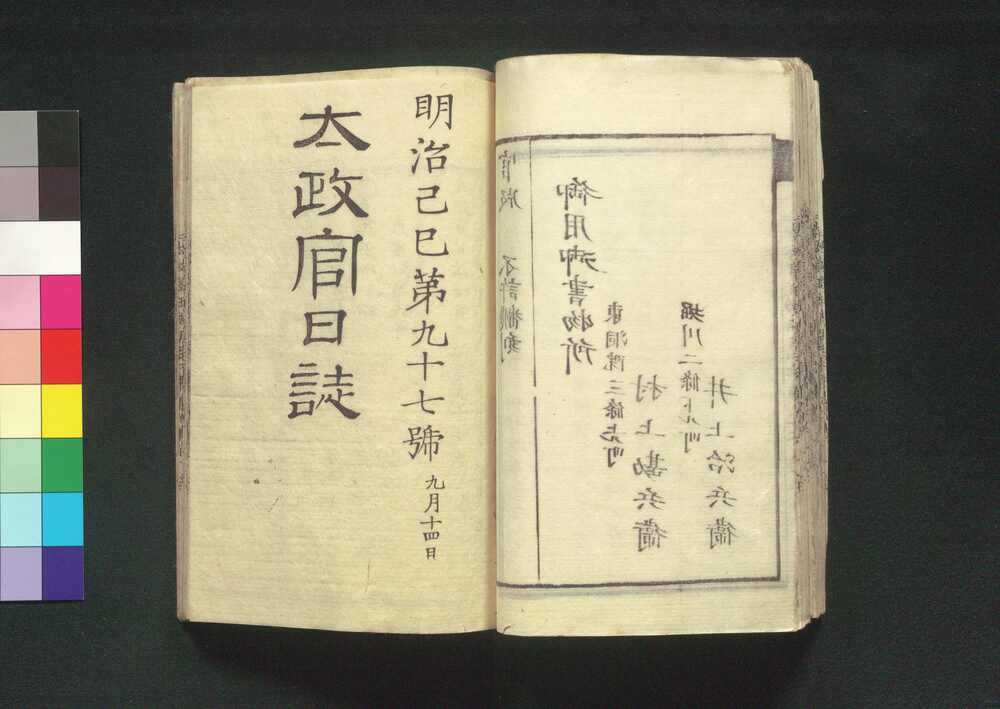 官版 不許翻刻
御用御書物所
東洞院三條上ル町
村上勘兵衛
堀川二條下ル町
井上治兵衛
明治己巳第九十七號 九月十四日
太政官日誌